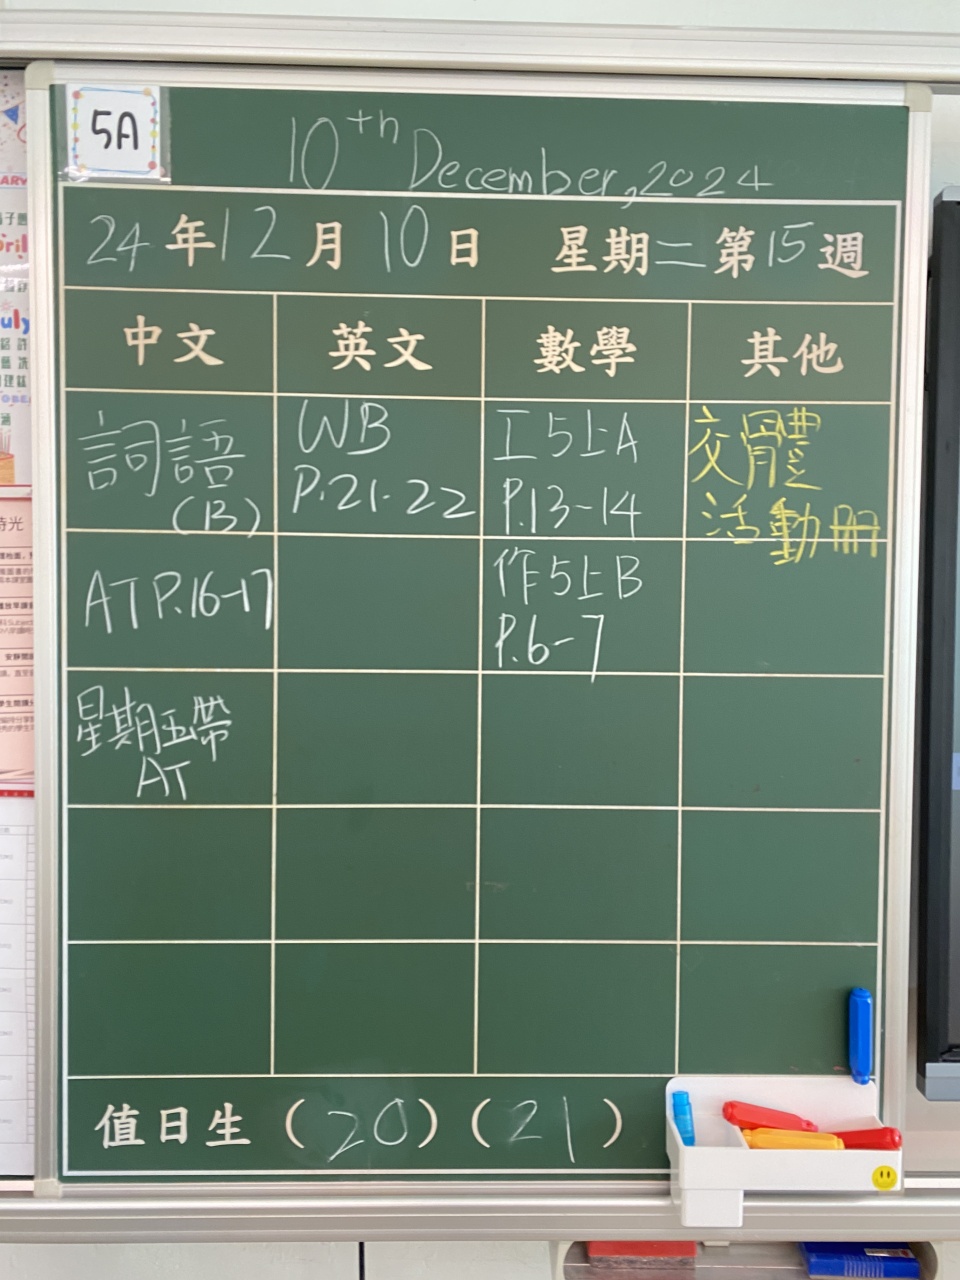 5A
10th December, 2024
24年12月10日 星期二第15週
中文 英文 數學 其他
詞語
(B)
WB
P.21-22
工5上A
P.13-14
交體
活動冊
AT P.16-17
作5上B
P.6-7
星期五帶
AT
值日生 (20) (21)